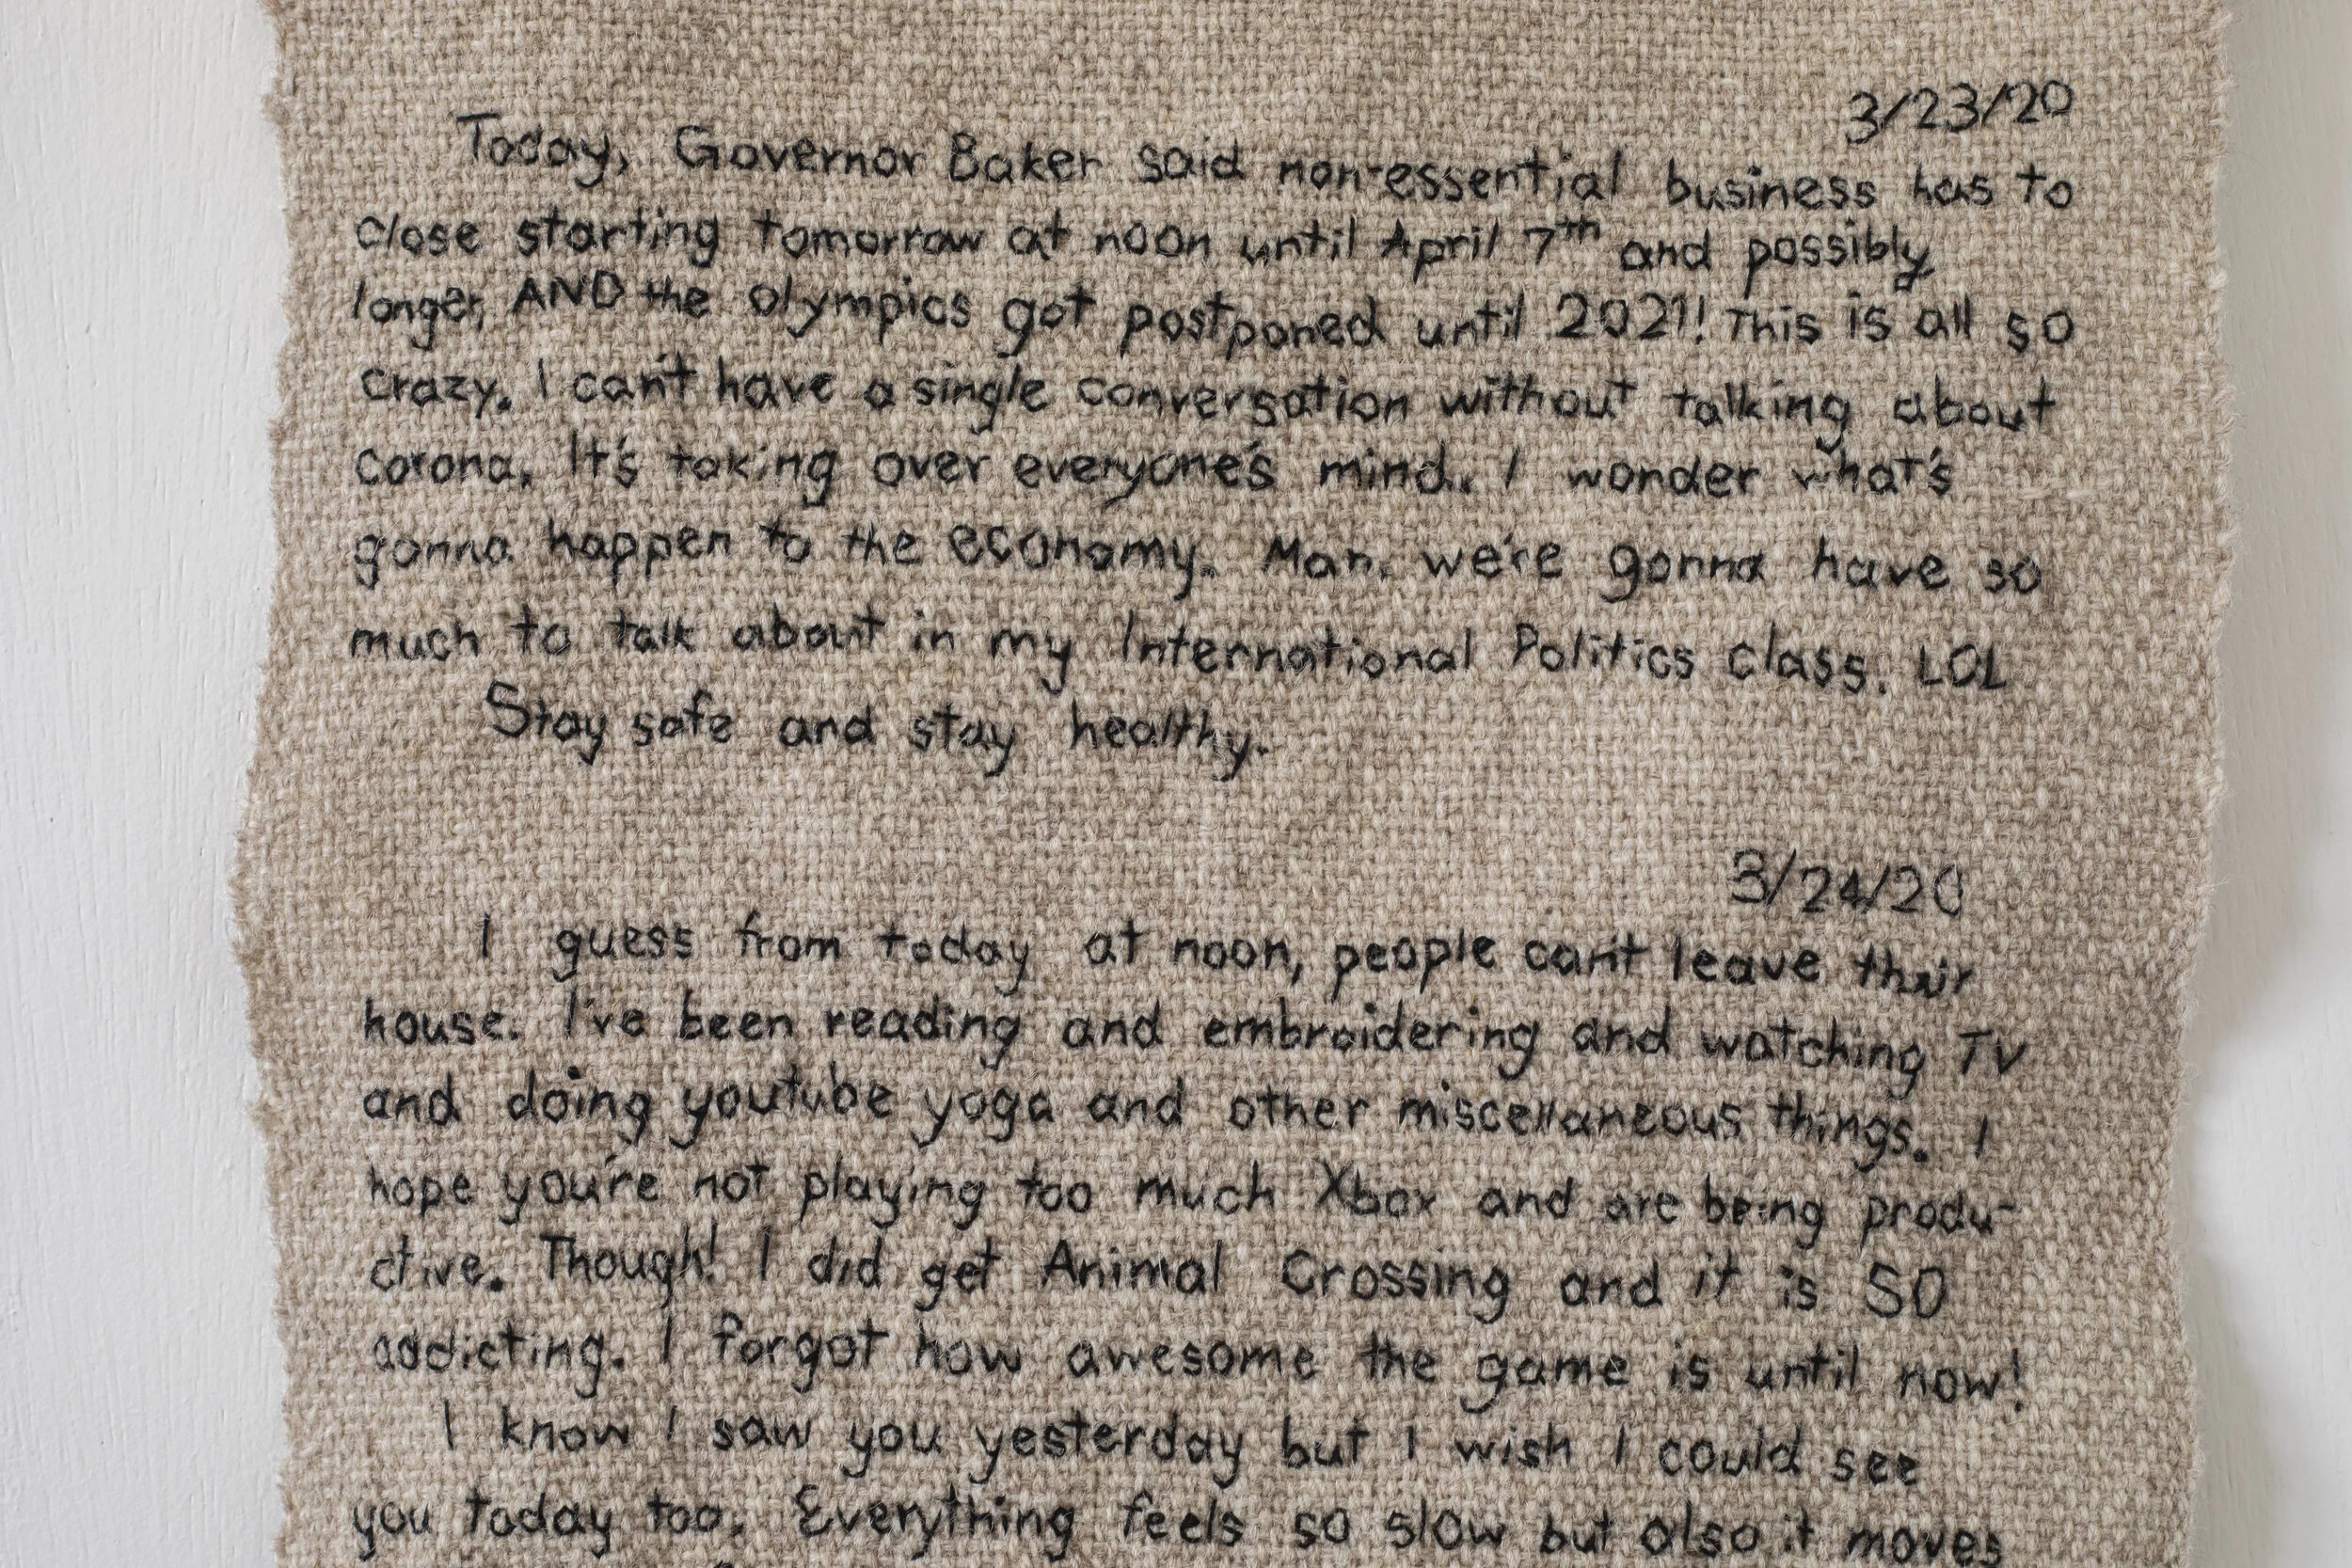 3/23/20
Today, Governor Baker said non-essential business has to
close starting tomorrow at noon until April 7th and possibly
longer, AND the olympics got postponed until 2021! This is all so
crazy. I can't have a single conversation without talking about
corona. It's taking over everyone's mind.. I wonder what's
gonna happen to the economy. Man, we're gonna have so
much to talk about in my International Politics class. LOL
Stay safe and stay healthy.
3/24/20
I guess from today at noon, people can't leave their
house. I've been reading and embroidering and watching TV
and doing youtube yoga and other miscellaneous things. I
hope you're not playing too much Xbox and are being produ-
ctive. Though! I did get Animal Crossing and it is SO
addicting. I forgot how awesome the game is until now!
I know I saw you yesterday but I wish I could see
you today too. Everything feels so slow but also it moves